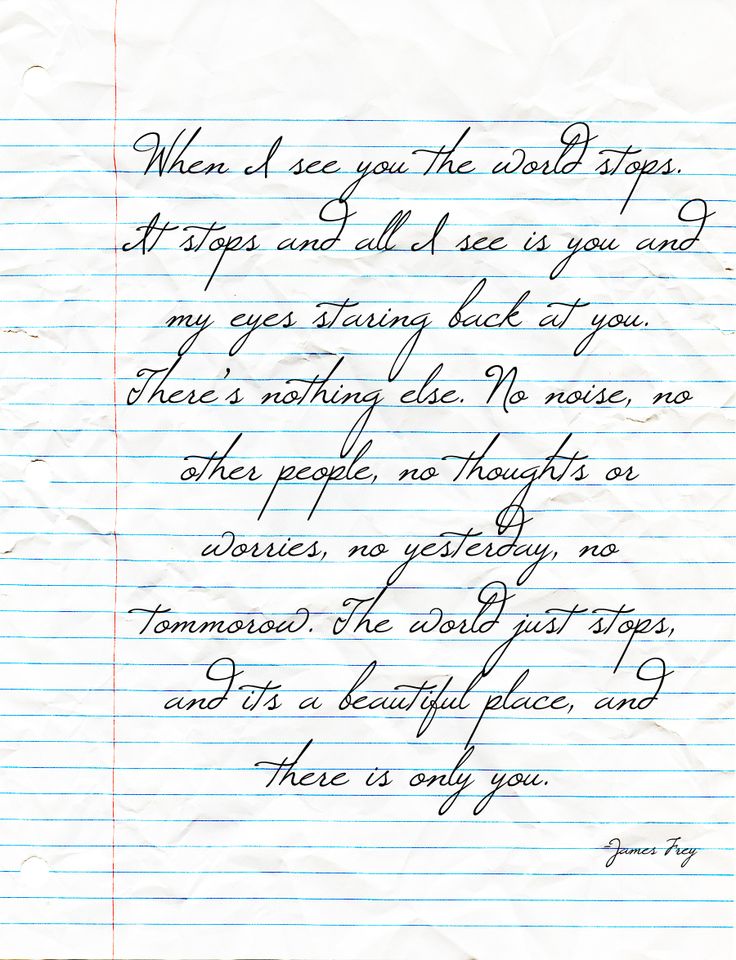 When I see you the world stops.
It stops and all I see is you and
my eyes staring back at you.
There's nothing else. No noise, no
other people, no thoughts or
worries, no yesterday, no
tommorow. The world just stops,
and its a beautiful place, and
there is only you.
-James Frey